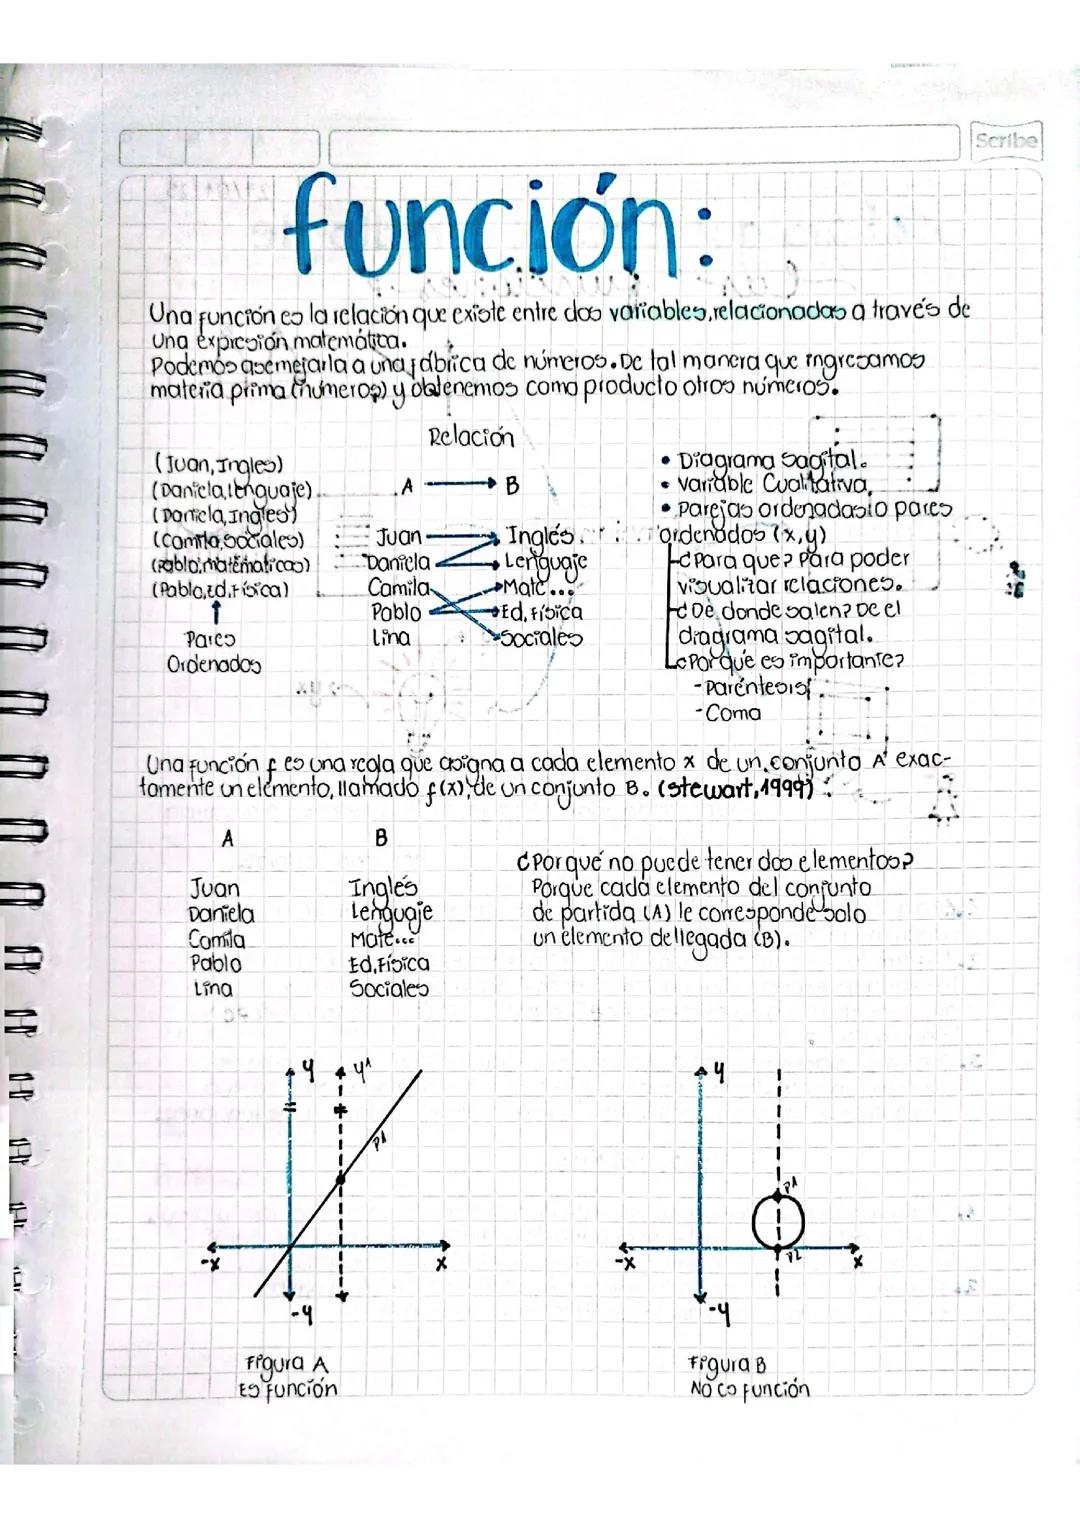 Scribe
función:
Una función es la relación que existe entre dos variables, relacionadas a través de
una expresión matemática.
Podemos asemejarla a una fábrica de números. De tal manera que ingresamos
materia prima (números) y obtenemos como producto otros números.
Relación
(Juan, Ingles)
(Daniela, lenguaje)
(Daniela, Ingles)
(Camila, sociales)
(Pablo, matemáticas)
(Pablo, Ed. Física)
Pares
Ordenados
A → B
Juan Inglés
Daniela Lenguaje
Camila Mate...
Pablo Ed. Física
Lina Sociales
• Diagrama sagital.
• Variable Cualitativa.
• Parejas ordenadas o pares
ordenados (x,y)
¿Para que? Para poder
visualizar relaciones.
¿De donde salen? De el
diagrama sagital.
¿Por qué es importante?
- Paréntesis
- Coma
Una función f es una regla que asigna a cada elemento x de un conjunto A exac-
tamente un elemento, llamado f(x), de un conjunto B. (Stewart, 1999)
A B
Juan Inglés
Daniela Lenguaje
Camila Mate...
Pablo Ed. Física
Lina Sociales
¿Por qué no puede tener dos elementos?
Porque cada elemento del conjunto
de partida (A) le corresponde solo
un elemento de llegada (B).
y y1
P1
-x x
-y
Figura A
Es función
y
P1
P2
-x x
-y
Figura B
No es función